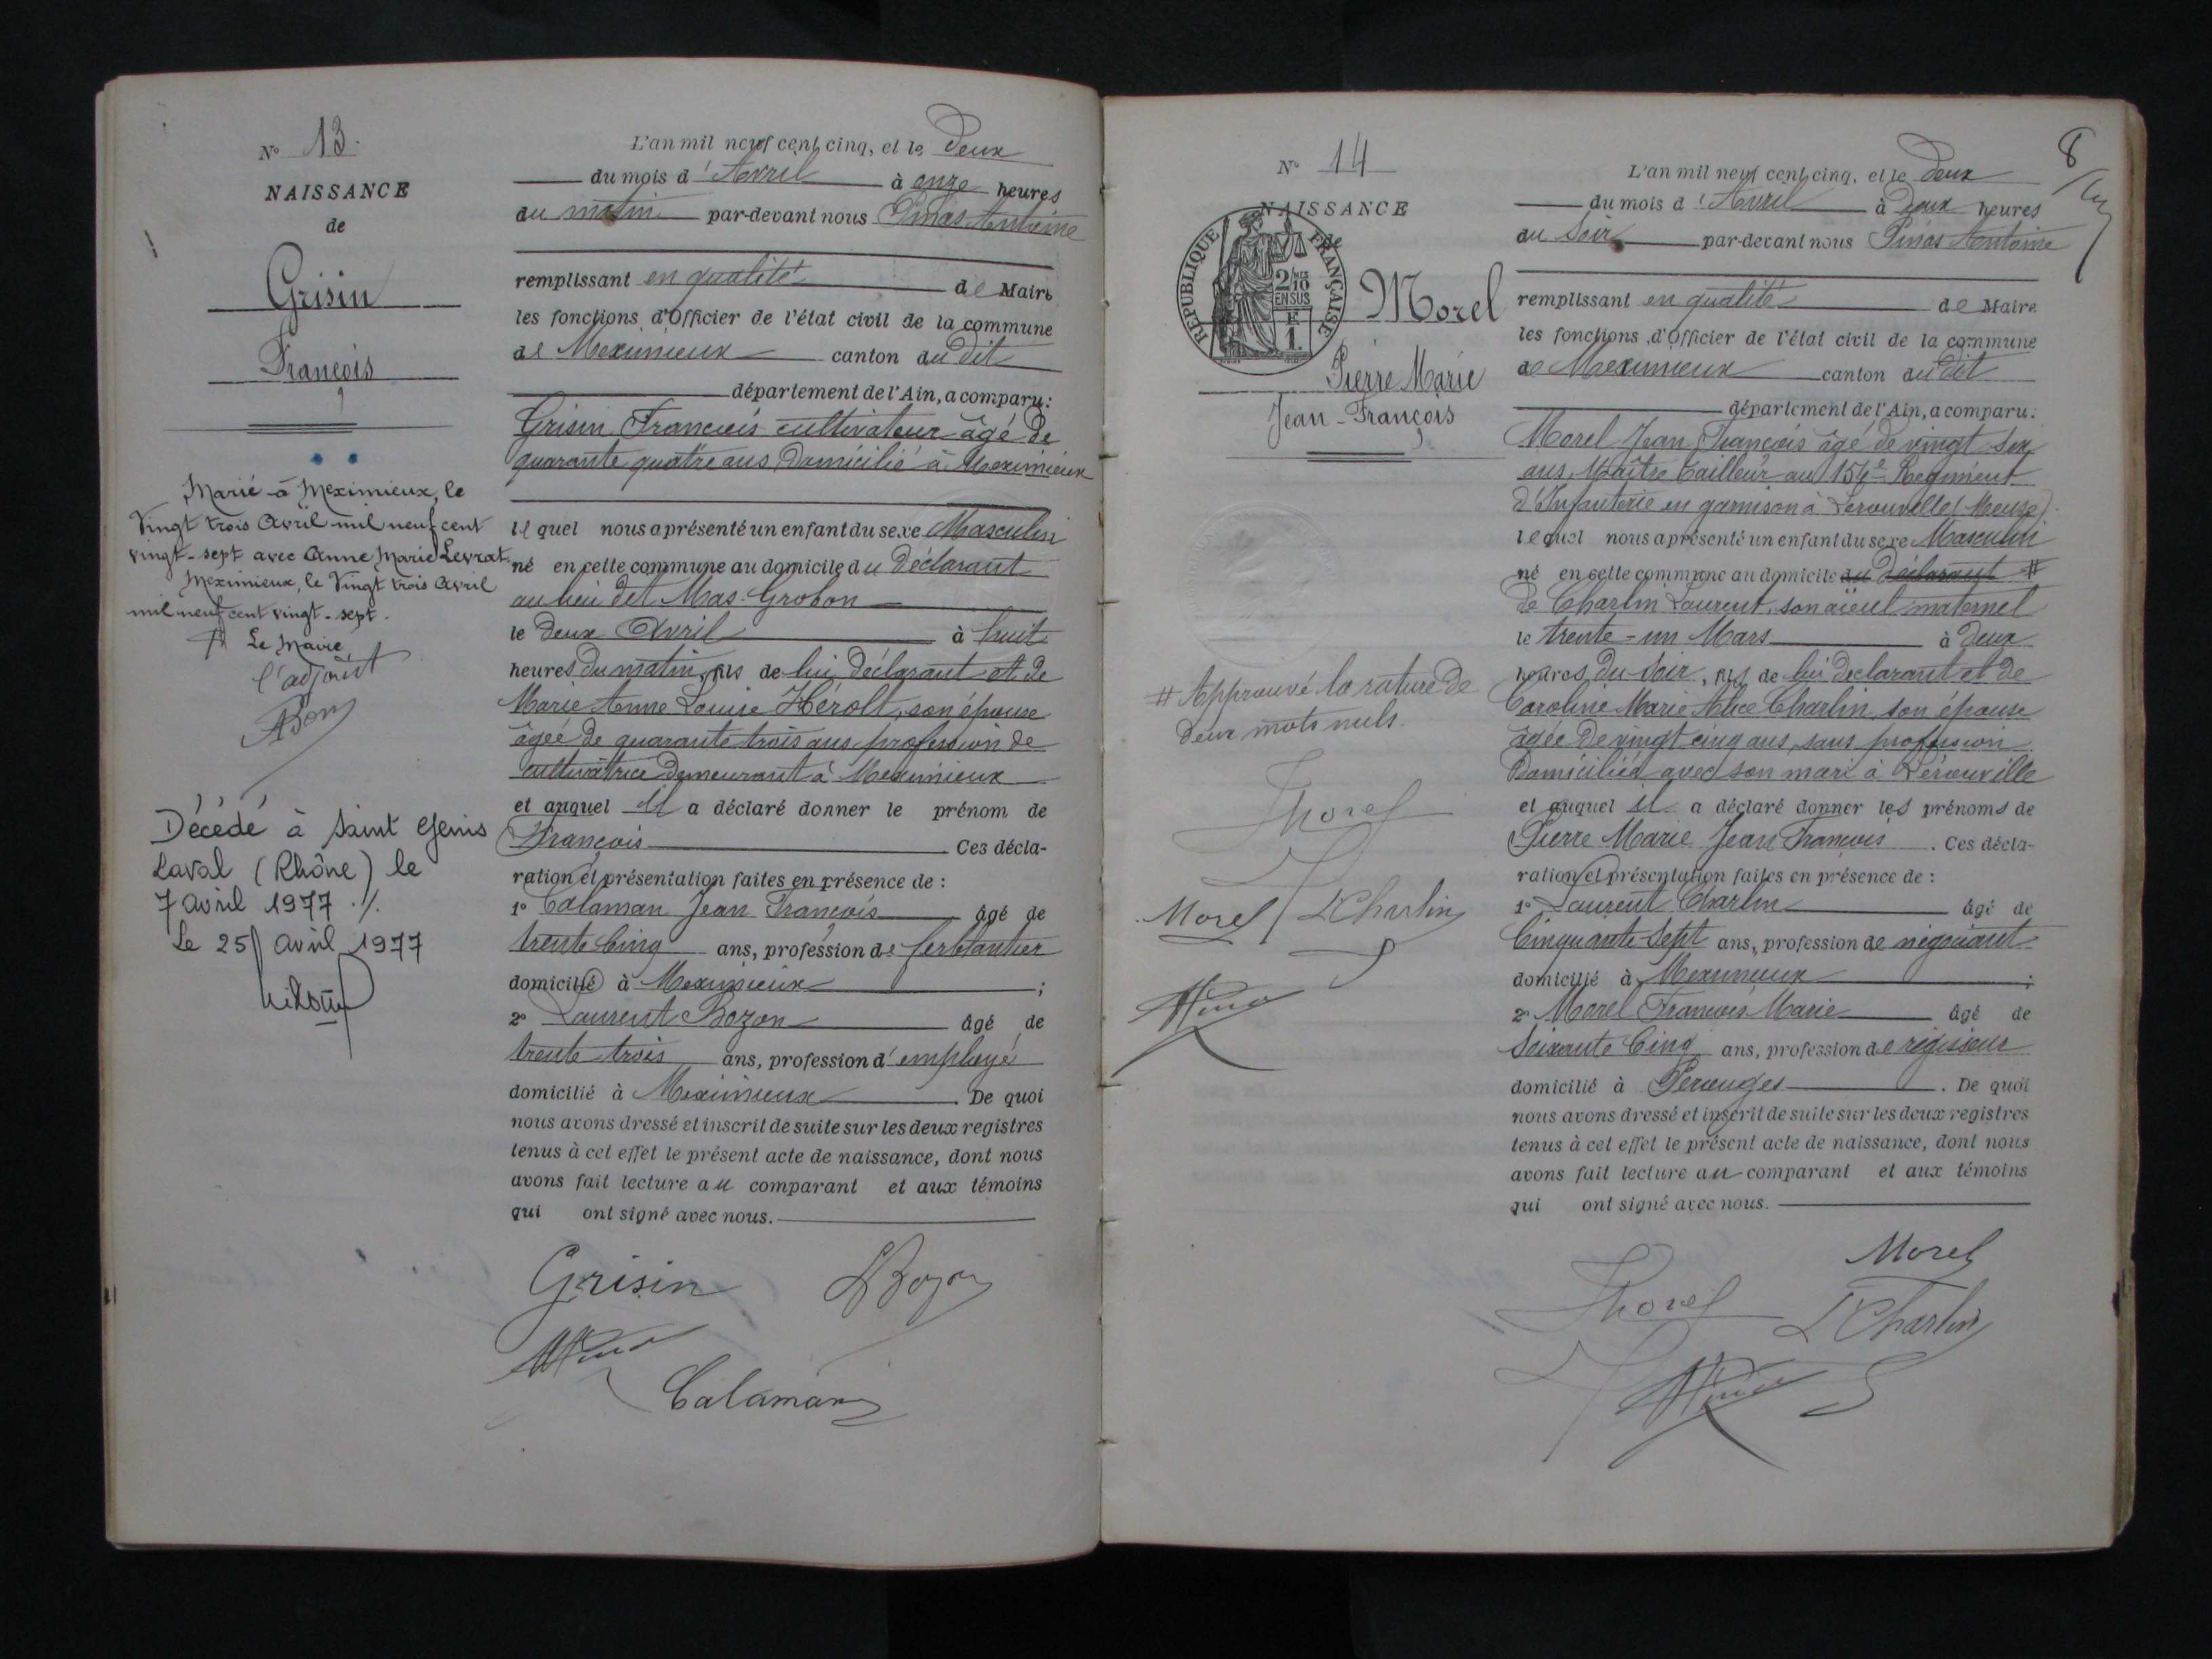 N° 13.
NAISSANCE
de
Grisin
François
Marié à Meximieux, le
Vingt trois Avril mil neuf cent
vingt-sept avec Anne Marie Levrat.
Meximieux, le Vingt trois Avril
mil neuf cent vingt-sept.
Le Maire,
l'adjoint
Décédé à Saint Genis
Laval (Rhône) le
7 avril 1977 ./.
Le 25 avril 1977
L'an mil neuf cent cinq, et le Deux
du mois d'Avril à onze heures
du matin par-devant nous Pinas Antoine
remplissant en qualité de Maire
les fonctions d'Officier de l'état civil de la commune
de Meximieux canton du dit
département de l'Ain, a comparu:
Grisin François cultivateur âgé de
quarante quatre ans Domicilié à Meximieux
lequel nous a présenté un enfant du sexe Masculin
né en cette commune au domicile du Déclarant
au lieu dit Mas-Grobon
le deux Avril à huit
heures du matin, fils de lui Déclarant et de
Marie Anne Louise Hérolt, son épouse
âgée de quarante trois ans profession de
cultivatrice Demeurant à Meximieux
et auquel il a déclaré donner le prénom de
François Ces décla-
ration et présentation faites en présence de :
1° Calaman Jean François âgé de
trente cinq ans, profession de ferblantier
domicilié à Meximieux ;
2° Laurent Bozon âgé de
trente trois ans, profession d'employé
domicilié à Meximieux . De quoi
nous avons dressé et inscrit de suite sur les deux registres
tenus à cet effet le présent acte de naissance, dont nous
avons fait lecture au comparant et aux témoins
qui ont signé avec nous.
Grisin LBozon
Calaman
8
N° 14
NAISSANCE
de
REPUBLIQUE FRANÇAISE
2/10
EN SUS
E
1.
Morel
Pierre Marie
Jean-François
# Approuvé la rature de
Deux mots nuls.
Morel
Morel LCharlin
L'an mil neuf cent cinq, et le Deux
du mois d'Avril à Deux heures
du Soir par-devant nous Pinas Antoine
remplissant en qualité de Maire
les fonctions d'Officier de l'état civil de la commune
de Meximieux canton du dit
département de l'Ain, a comparu:
Morel Jean François âgé de vingt six
ans, Maître tailleur au 154e Régiment
d'Infanterie en garnison à Lérouville (Meuse)
lequel nous a présenté un enfant du sexe Masculin
né en cette commune au domicile du Déclarant #
de Charlin Laurent, son aïeul maternel
le trente-un Mars à deux
heures du Soir, fils de lui Déclarant et de
Caroline Marie Alice Charlin, son épouse
âgée de vingt cinq ans, sans profession
Domiciliée avec son mari à Lérouville
et auquel il a déclaré donner les prénoms de
Pierre Marie Jean François . Ces décla-
ration et présentation faites en présence de :
1° Laurent Charlin âgé de
Cinquante-Sept ans, profession de négociant
domicilié à Meximieux ;
2° Morel François Marie âgé de
Soixante Cinq ans, profession de régisseur
domicilié à Perouges . De quoi
nous avons dressé et inscrit de suite sur les deux registres
tenus à cet effet le présent acte de naissance, dont nous
avons fait lecture au comparant et aux témoins
qui ont signé avec nous.
Morel
Morel LCharlin